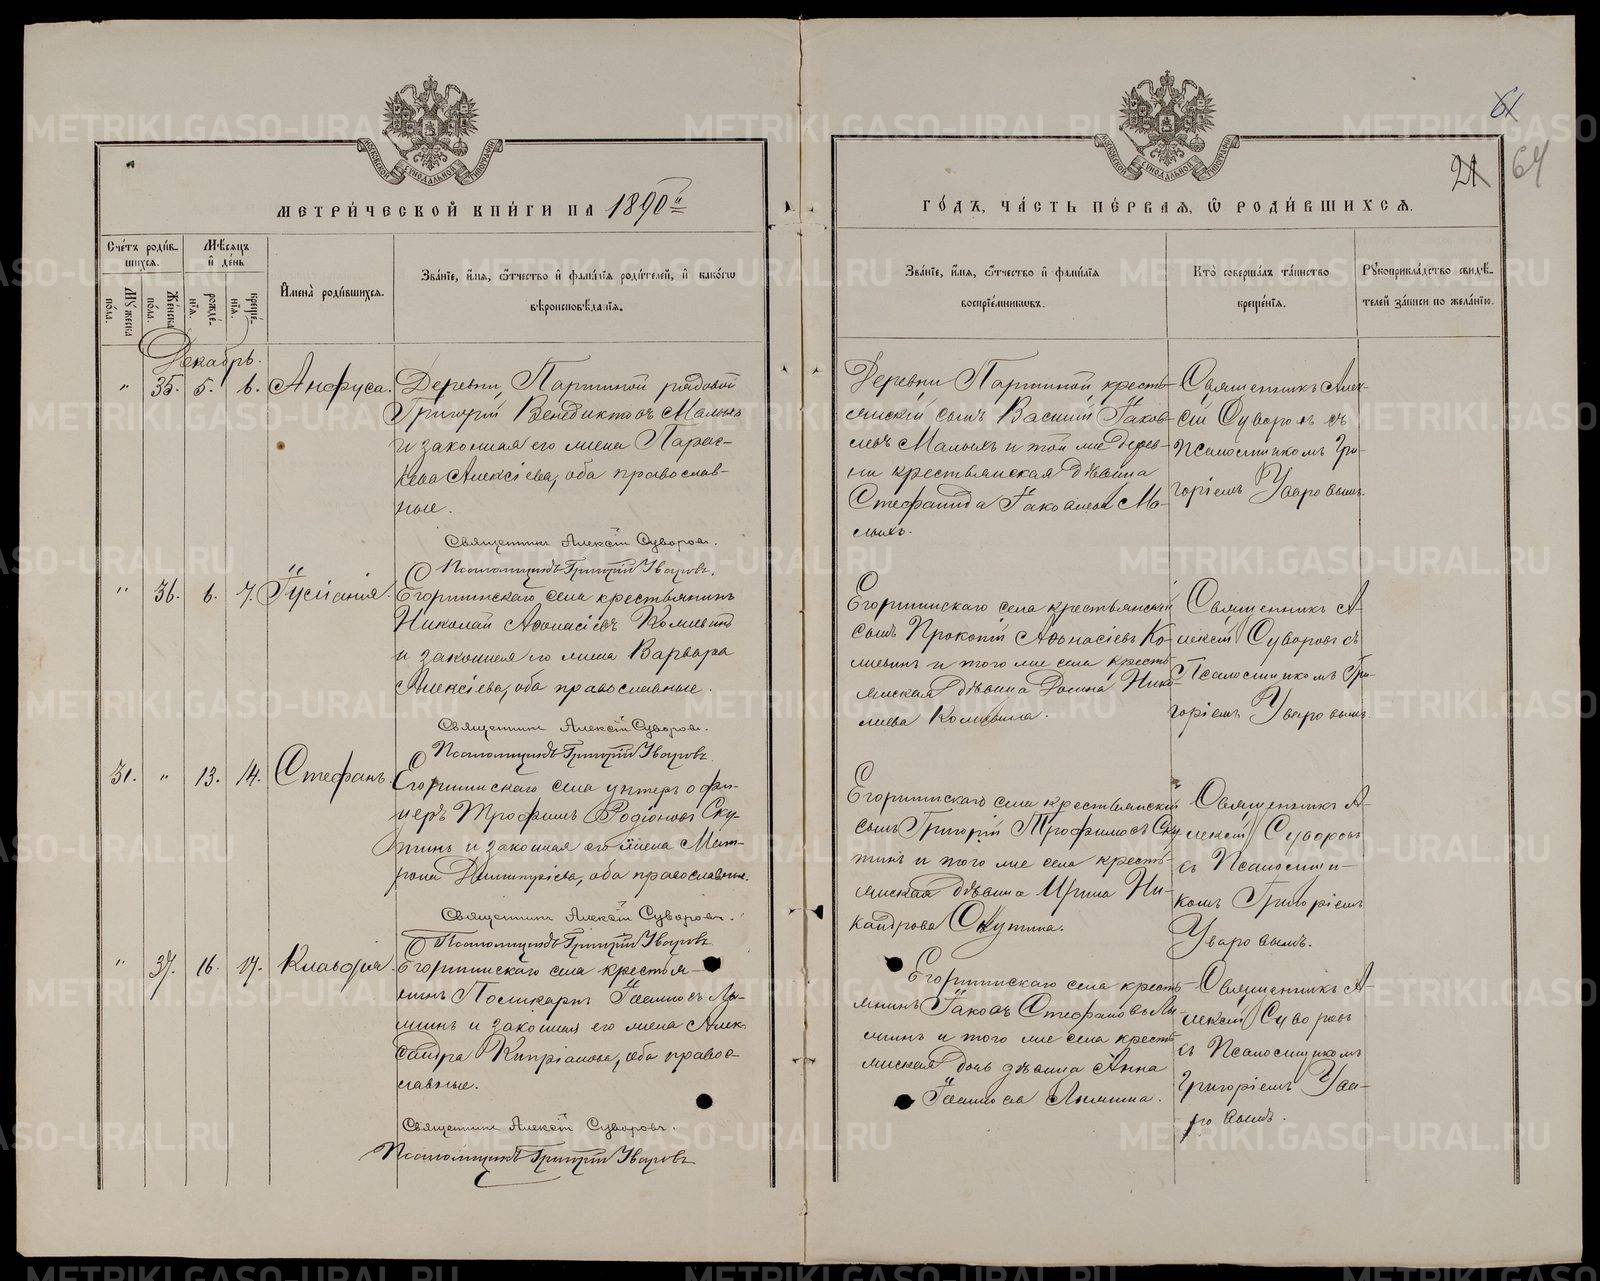 61
21
64
МЕТРИ́ЧЕСКОЙ КНИ́ГИ НА 1890й
ГО́ДЪ, ЧА́СТЬ ПЕ́РВАЯ, Ѡ РОДИ́ВШИХСЯ.
Сче́тъ роди́в-
шихся.
Мѣ́сяцъ
и де́нь
Мꙋ́жеска по́ла.
Же́нска по́ла.
рожде́-
нїя.
креще́-
нїя.
Имена̀ роди́вшихся.
Зва́нїе, и́мя, ѻ́тчество и фами́лїя роди́телей, и како́гѡ
вѣроисповѣ́данїя.
Зва́нїе, и́мя, ѻ́тчество и фами́лїя
воспрїе́мниковъ.
Кто̀ соверша́лъ та́инство
креще́нїя.
Рꙋкоприкла́дство свидѣ́-
телей за́писи по жела́нїю.
Декабрь.
" 35. 5. 6. Анфуса.
Деревни Паршиной рядовой
Григорій Венедиктовъ Малыхъ
и законная его жена Парас-
кева Алексіева, оба православ-
ные.
Священникъ Алексій Суворовъ.
Псаломщикъ Григорій Уваровъ.
Деревни Паршиной кресть-
янскій сынъ Василій Іаков-
левъ Малыхъ и той же дерев-
ни крестьянская дѣвица
Стефанида Іаковлева Ма-
лыхъ.
Священникъ Алек-
сій Суворовъ съ
Псаломщикомъ Гри-
горіемъ Уваровымъ.
" 36. 6. 7. Іуліанія.
Егоршинскаго села крестьянинъ
Николай Аѳонасіевъ
и законная его жена Варвара
Алексіева, оба православные.
Священникъ Алексій Суворовъ.
Псаломщикъ Григорій Уваровъ.
Егоршинскаго села крестьянскій
сынъ Прокопій Аѳонасіевъ
и того же села кресть-
янская дѣвица Нико-
лаева
Священникъ А-
лексій Суворовъ съ
Псаломщикомъ Гри-
горіемъ Уваровымъ.
31. " 13. 14. Стефанъ.
Егоршинскаго села унтеръ офи-
церъ Трофимъ Родіоновъ Ску-
тинъ и законная его жена Мат-
рона Димитріева, оба православные.
Священникъ Алексій Суворовъ.
Псаломщикъ Григорій Уваровъ
Егоршинскаго села крестьянскій
сынъ Григорій Трофимовъ Ску-
тинъ и того же села кресть-
янская дѣвица Ирина Ни-
кандрова Скутина.
Священникъ А-
лексій Суворовъ
съ Псаломщи-
комъ Григоріемъ
Уваровымъ.
" 37. 16. 17. Клавдія.
Егоршинскаго села кресть-
янинъ Поликарпъ Іоанновъ Ля-
минъ и законная его жена Алек-
сандра Кипріанова, оба право-
славные.
Священникъ Алексій Суворовъ.
Псаломщикъ Григорій Уваровъ
Егоршинскаго села кресть-
янинъ Іаковъ Стефановъ Ля-
минъ и того же села кресть-
янская дочь дѣвица Анна
Іоаннова Лямина.
Священникъ А-
лексій Суворовъ
съ Псаломщикомъ
Григоріемъ Ува-
ровымъ.
METRIKI.GASO-URAL.RU